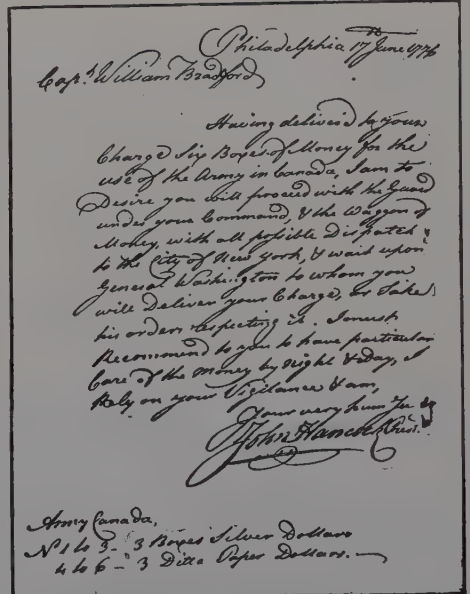 Philadelphia 17th June 1776
Capt. William Bradford,
Having deliver'd to your
Charge Six Boxes of Money for the
use of the Army in Canada, I am to
Desire you will proceed with the Guard
under your Command, & the Waggon of
Money, with all possible Dispatch
to the City of New York, & wait upon
General Washington to whom you
will Deliver your Charge, or Take
his orders respecting it. I must
Recommend to you to have particular
Care of the Money by Night & day, I
Rely on your Vigilance & am,
Your very hum
John Hancock Presid.
Army Canada,
No. 1 to 3 - 3 Boxes Silver Dollars
4 to 6 - 3 Ditto Paper Dollars.